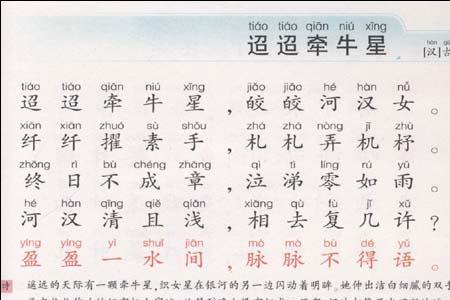 tiáo tiáo qiān niú xīng
迢迢牵牛星
hàn gǔ
[汉] 古
tiáo tiáo qiān niú xīng jiǎo jiǎo hé hàn nǚ
迢迢牵牛星，皎皎河汉女。
xiān xiān zhuó sù shǒu zhá zhá nòng jī zhù
纤纤擢素手，札札弄机杼。
zhōng rì bù chéng zhāng qì tì líng rú yǔ
终日不成章，泣涕零如雨。
hé hàn qīng qiě qiǎn xiāng qù fù jǐ xǔ
河汉清且浅，相去复几许？
yíng yíng yì shuǐ jiān mò mò bù dé yǔ
盈盈一水间，脉脉不得语。
诗 遥远的天际有一颗牵牛星，织女星在银河的另一边闪动着明眸。她伸出洁白细腻的双手